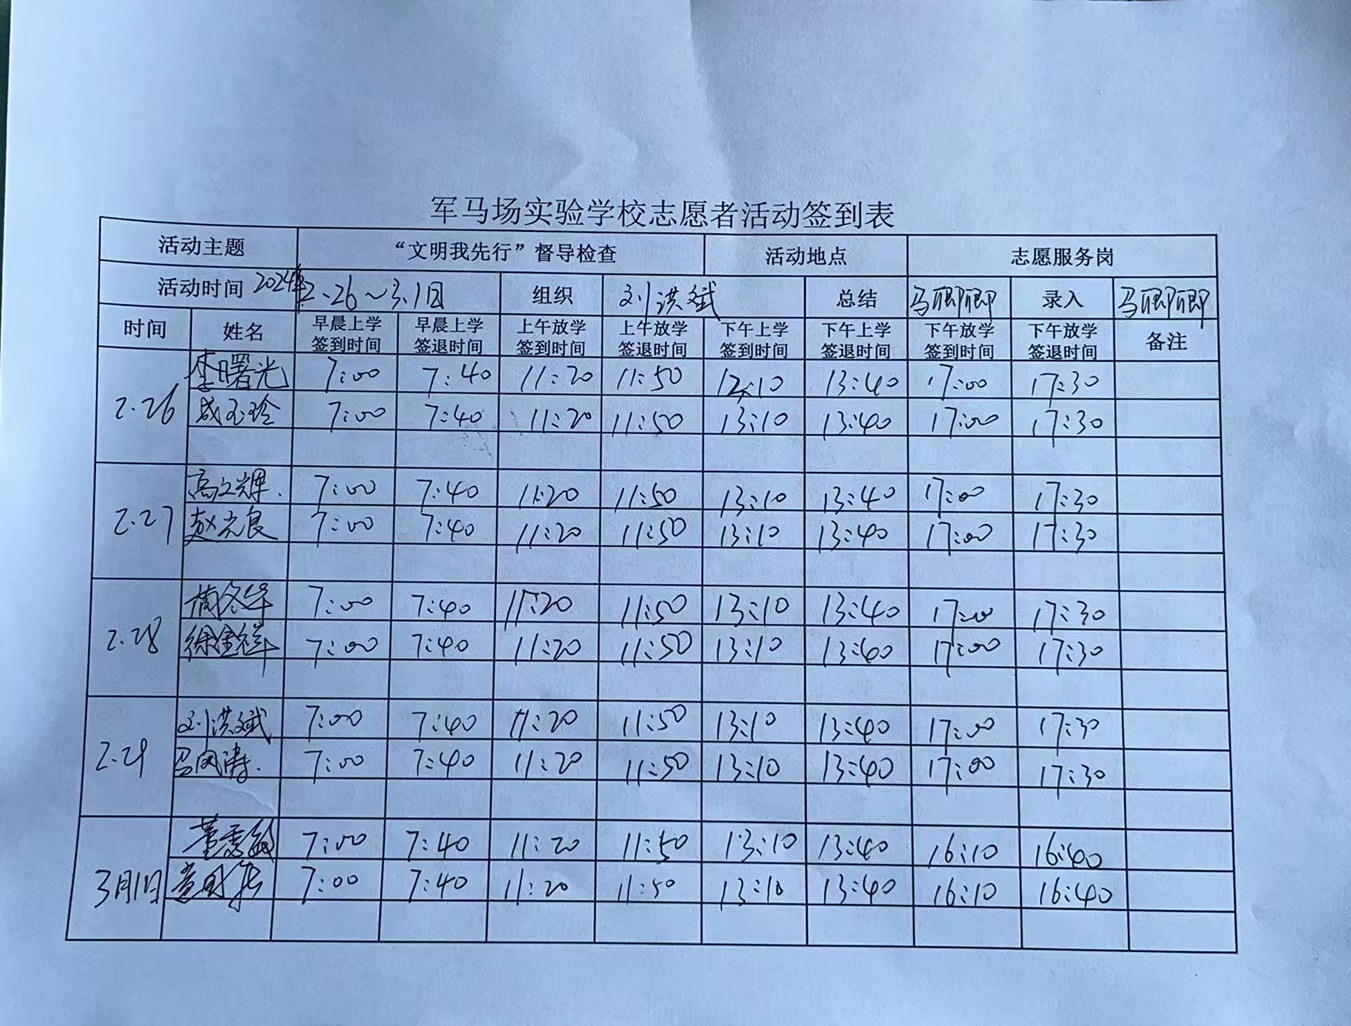 军马场实验学校志愿者活动签到表
活动主题 “文明我先行”督导检查 活动地点 志愿服务岗
活动时间 2024年2.26～3.1日 组织 刘洪斌 总结 马卿卿 录入 马卿卿
时间 姓名 早晨上学签到时间 早晨上学签退时间 上午放学签到时间 上午放学签退时间 下午上学签到时间 下午上学签退时间 下午放学签到时间 下午放学签退时间 备注
2.26 李曙光 7:00 7:40 11:20 11:50 13:40 17:00 17:30
成玉玲 7:00 7:40 11:20 11:50 13:10 13:40 17:00 17:30
2.27 高立辉 7:00 7:40 11:20 11:50 13:10 13:40 17:00 17:30
赵光良 7:00 7:40 11:20 11:50 13:10 13:40 17:00 17:30
2.28 7:00 7:40 11:20 11:50 13:10 13:40 17:00 17:30
徐金祥 7:00 7:40 11:20 11:50 13:10 13:40 17:00 17:30
2.29 刘洪斌 7:00 7:40 11:20 11:50 13:10 13:40 17:00 17:30
7:00 7:40 11:20 11:50 13:10 13:40 17:00 17:30
3月1日 7:00 7:40 11:20 11:50 13:10 13:40 16:10 16:40
7:00 7:40 11:20 11:50 13:10 13:40 16:10 16:40